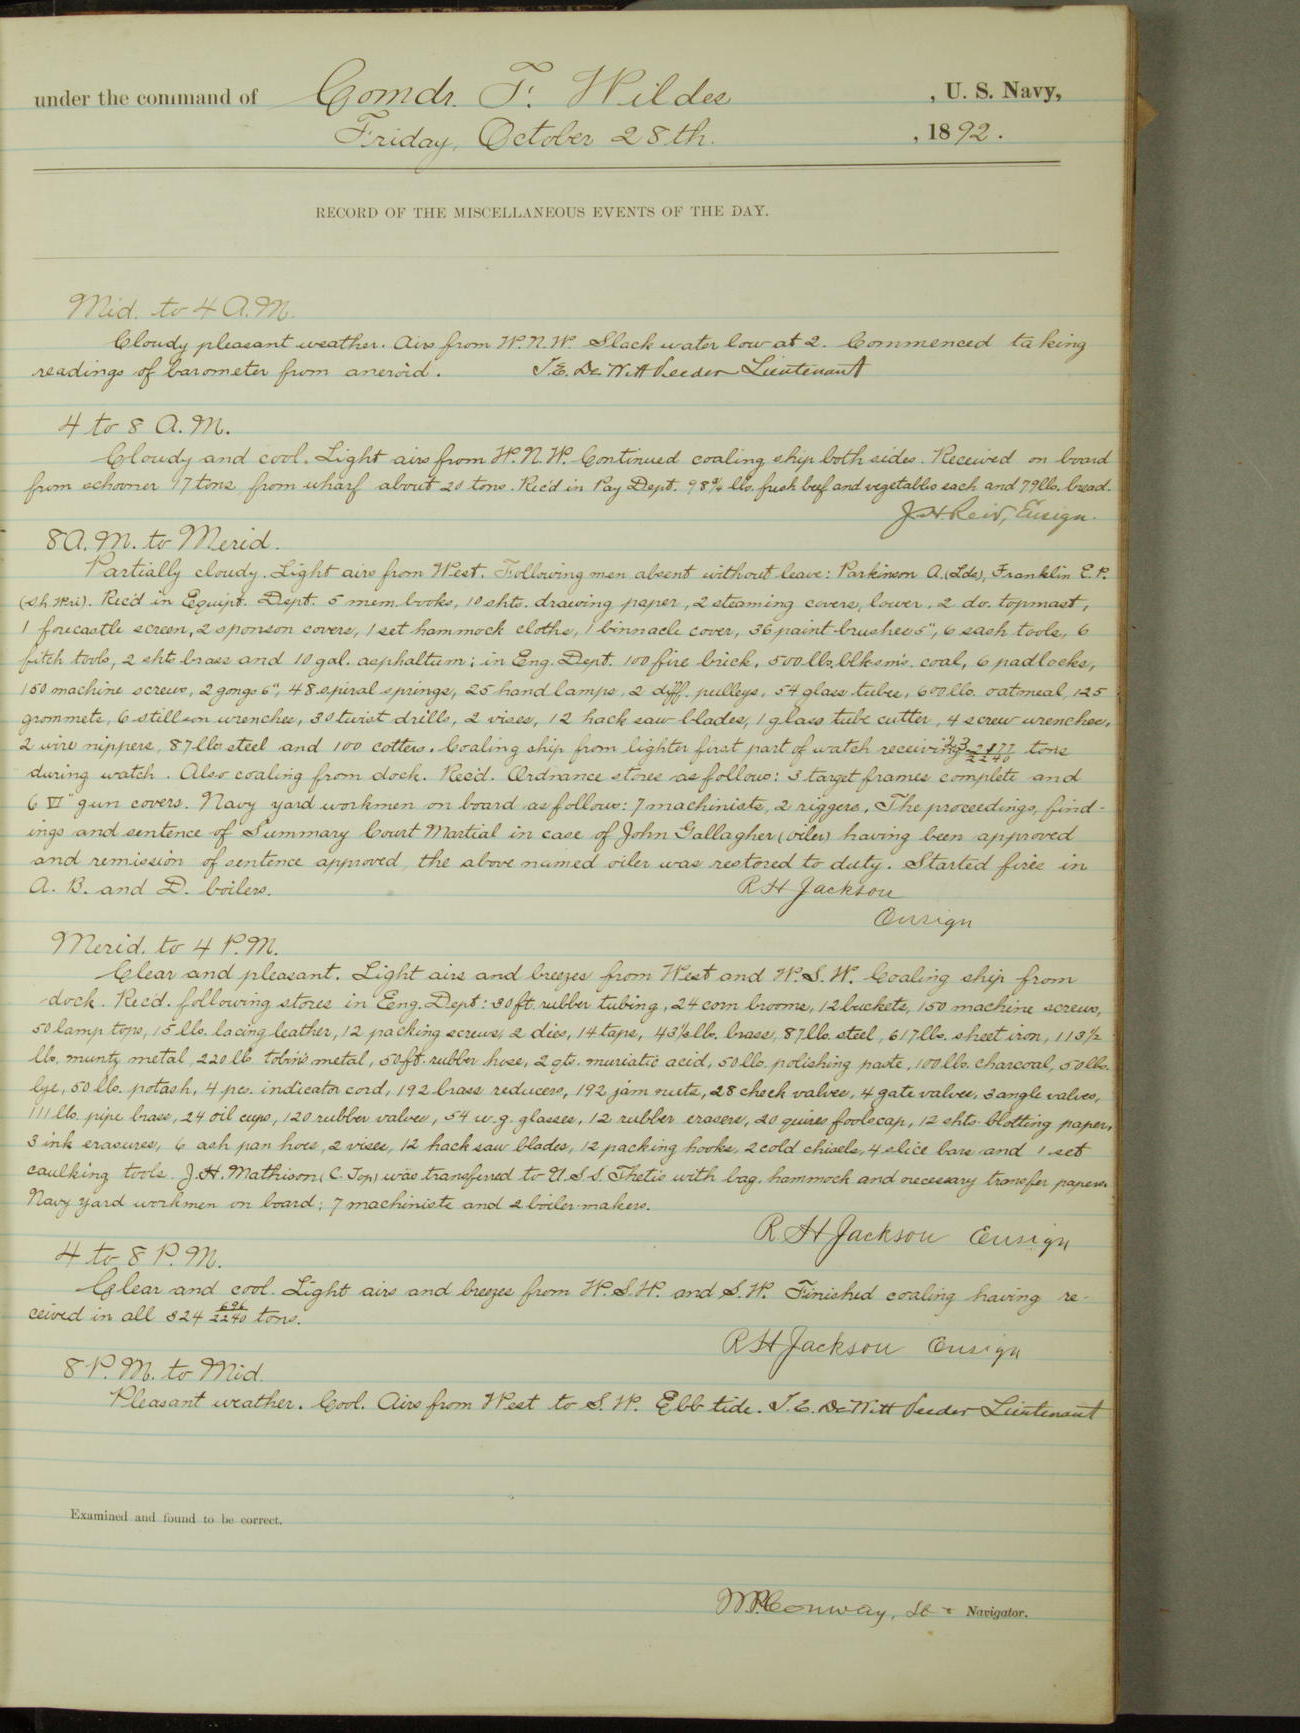 under the command of Comdr. F. Wildes, U. S. Navy,
Friday, October 28th. , 1892.
RECORD OF THE MISCELLANEOUS EVENTS OF THE DAY.
Mid. to 4 A.M.
Cloudy pleasant weather. Airs from W.N.W. Slack water low at 2. Commenced taking
readings of barometer from aneroid. T.E. DeWitt Veeder Lieutenant
4 to 8 A.M.
Cloudy and cool. Light airs from W.N.W. Continued coaling ship both sides. Received on board
from schooner 17 tons from wharf about 20 tons. Rec'd in Pay Dept. 98 3/4 lbs. fresh beef and vegetables each and 79 lbs. bread.
J H Reid, Ensign.
8 A.M. to Merid.
Partially cloudy. Light airs from West. Following men absent without leave: Parkinson A. (Lds), Franklin E.P.
(Sh. Wri). Rec'd in Equipt. Dept. 5 mem. books, 10 shts. drawing paper, 2 steaming covers, lower, 2 do. topmast,
1 forecastle screen, 2 sponson covers, 1 set hammock cloths, 1 binnacle cover, 36 paint brushes 5", 6 sash tools, 6
fitch tools, 2 shts brass and 10 gal. asphaltum; in Eng. Dept. 100 fire brick, 500 lbs. blksm's. coal, 6 padlocks,
150 machine screws, 2 gongs 6", 48 spiral springs, 25 hand lamps, 2 diff. pulleys, 54 glass tubes, 600 lbs. oatmeal, 125
grommets, 6 stillson wrenches, 30 twist drills, 2 vises, 12 hack saw blades, 1 glass tube cutter, 4 screw wrenches,
2 wire nippers, 87 lbs steel and 100 cotters. Coaling ship from lighter first part of watch receiving 2177/2240 tons
during watch. Also coaling from dock. Rec'd. Ordnance stores as follows: 3 target frames complete and
6 VI" gun covers. Navy yard workmen on board as follows: 7 machinists, 2 riggers. The proceedings, find-
ings and sentence of Summary Court Martial in case of John Gallagher (oiler) having been approved
and remission of sentence approved, the above named oiler was restored to duty. Started fires in
A. B. and D. boilers. R H Jackson
Ensign
Merid. to 4 P.M.
Clear and pleasant. Light airs and breezes from West and W.S.W. Coaling ship from
dock. Rec'd. following stores in Eng. Dept: 30 ft. rubber tubing, 24 corn brooms, 12 buckets, 150 machine screws,
50 lamp tops, 15 lbs. lacing leather, 12 packing screws, 2 dies, 14 taps, 43 1/2 lbs. brass, 87 lbs. steel, 617 lbs. sheet iron, 113 1/2
lbs. muntz metal, 220 lbs tobin's metal, 50 ft. rubber hose, 2 qts. muriatic acid, 50 lbs. polishing paste, 100 lbs. charcoal, 50 lbs.
lye, 50 lbs. potash, 4 pcs. indicator cord, 192 brass reducers, 192 jam nuts, 28 check valves, 4 gate valves, 3 angle valves,
111 lbs. pipe brass, 24 oil cups, 120 rubber valves, 54 w.g. glasses, 12 rubber erasers, 20 quires foolscap, 12 shts. blotting paper,
3 ink erasures, 6 ash pan hoes, 2 vises, 12 hack saw blades, 12 packing hooks, 2 cold chisels, 4 slice bars and 1 set
caulking tools. J.H. Mathison (C. Top) was transferred to U.S.S. Thetis with bag, hammock and necessary transfer papers.
Navy Yard workmen on board: 7 machinists and 2 boiler-makers.
R H Jackson Ensign
4 to 8 P.M.
Clear and cool. Light airs and breezes from W.S.W. and S.W. Finished coaling having re-
ceived in all 324 696/2240 tons.
R H Jackson Ensign
8 P.M. to Mid.
Pleasant weather. Cool. Airs from West to S.W. Ebb tide. T.E. DeWitt Veeder Lieutenant
Examined and found to be correct.
W.P. Conway, Lt Navigator.